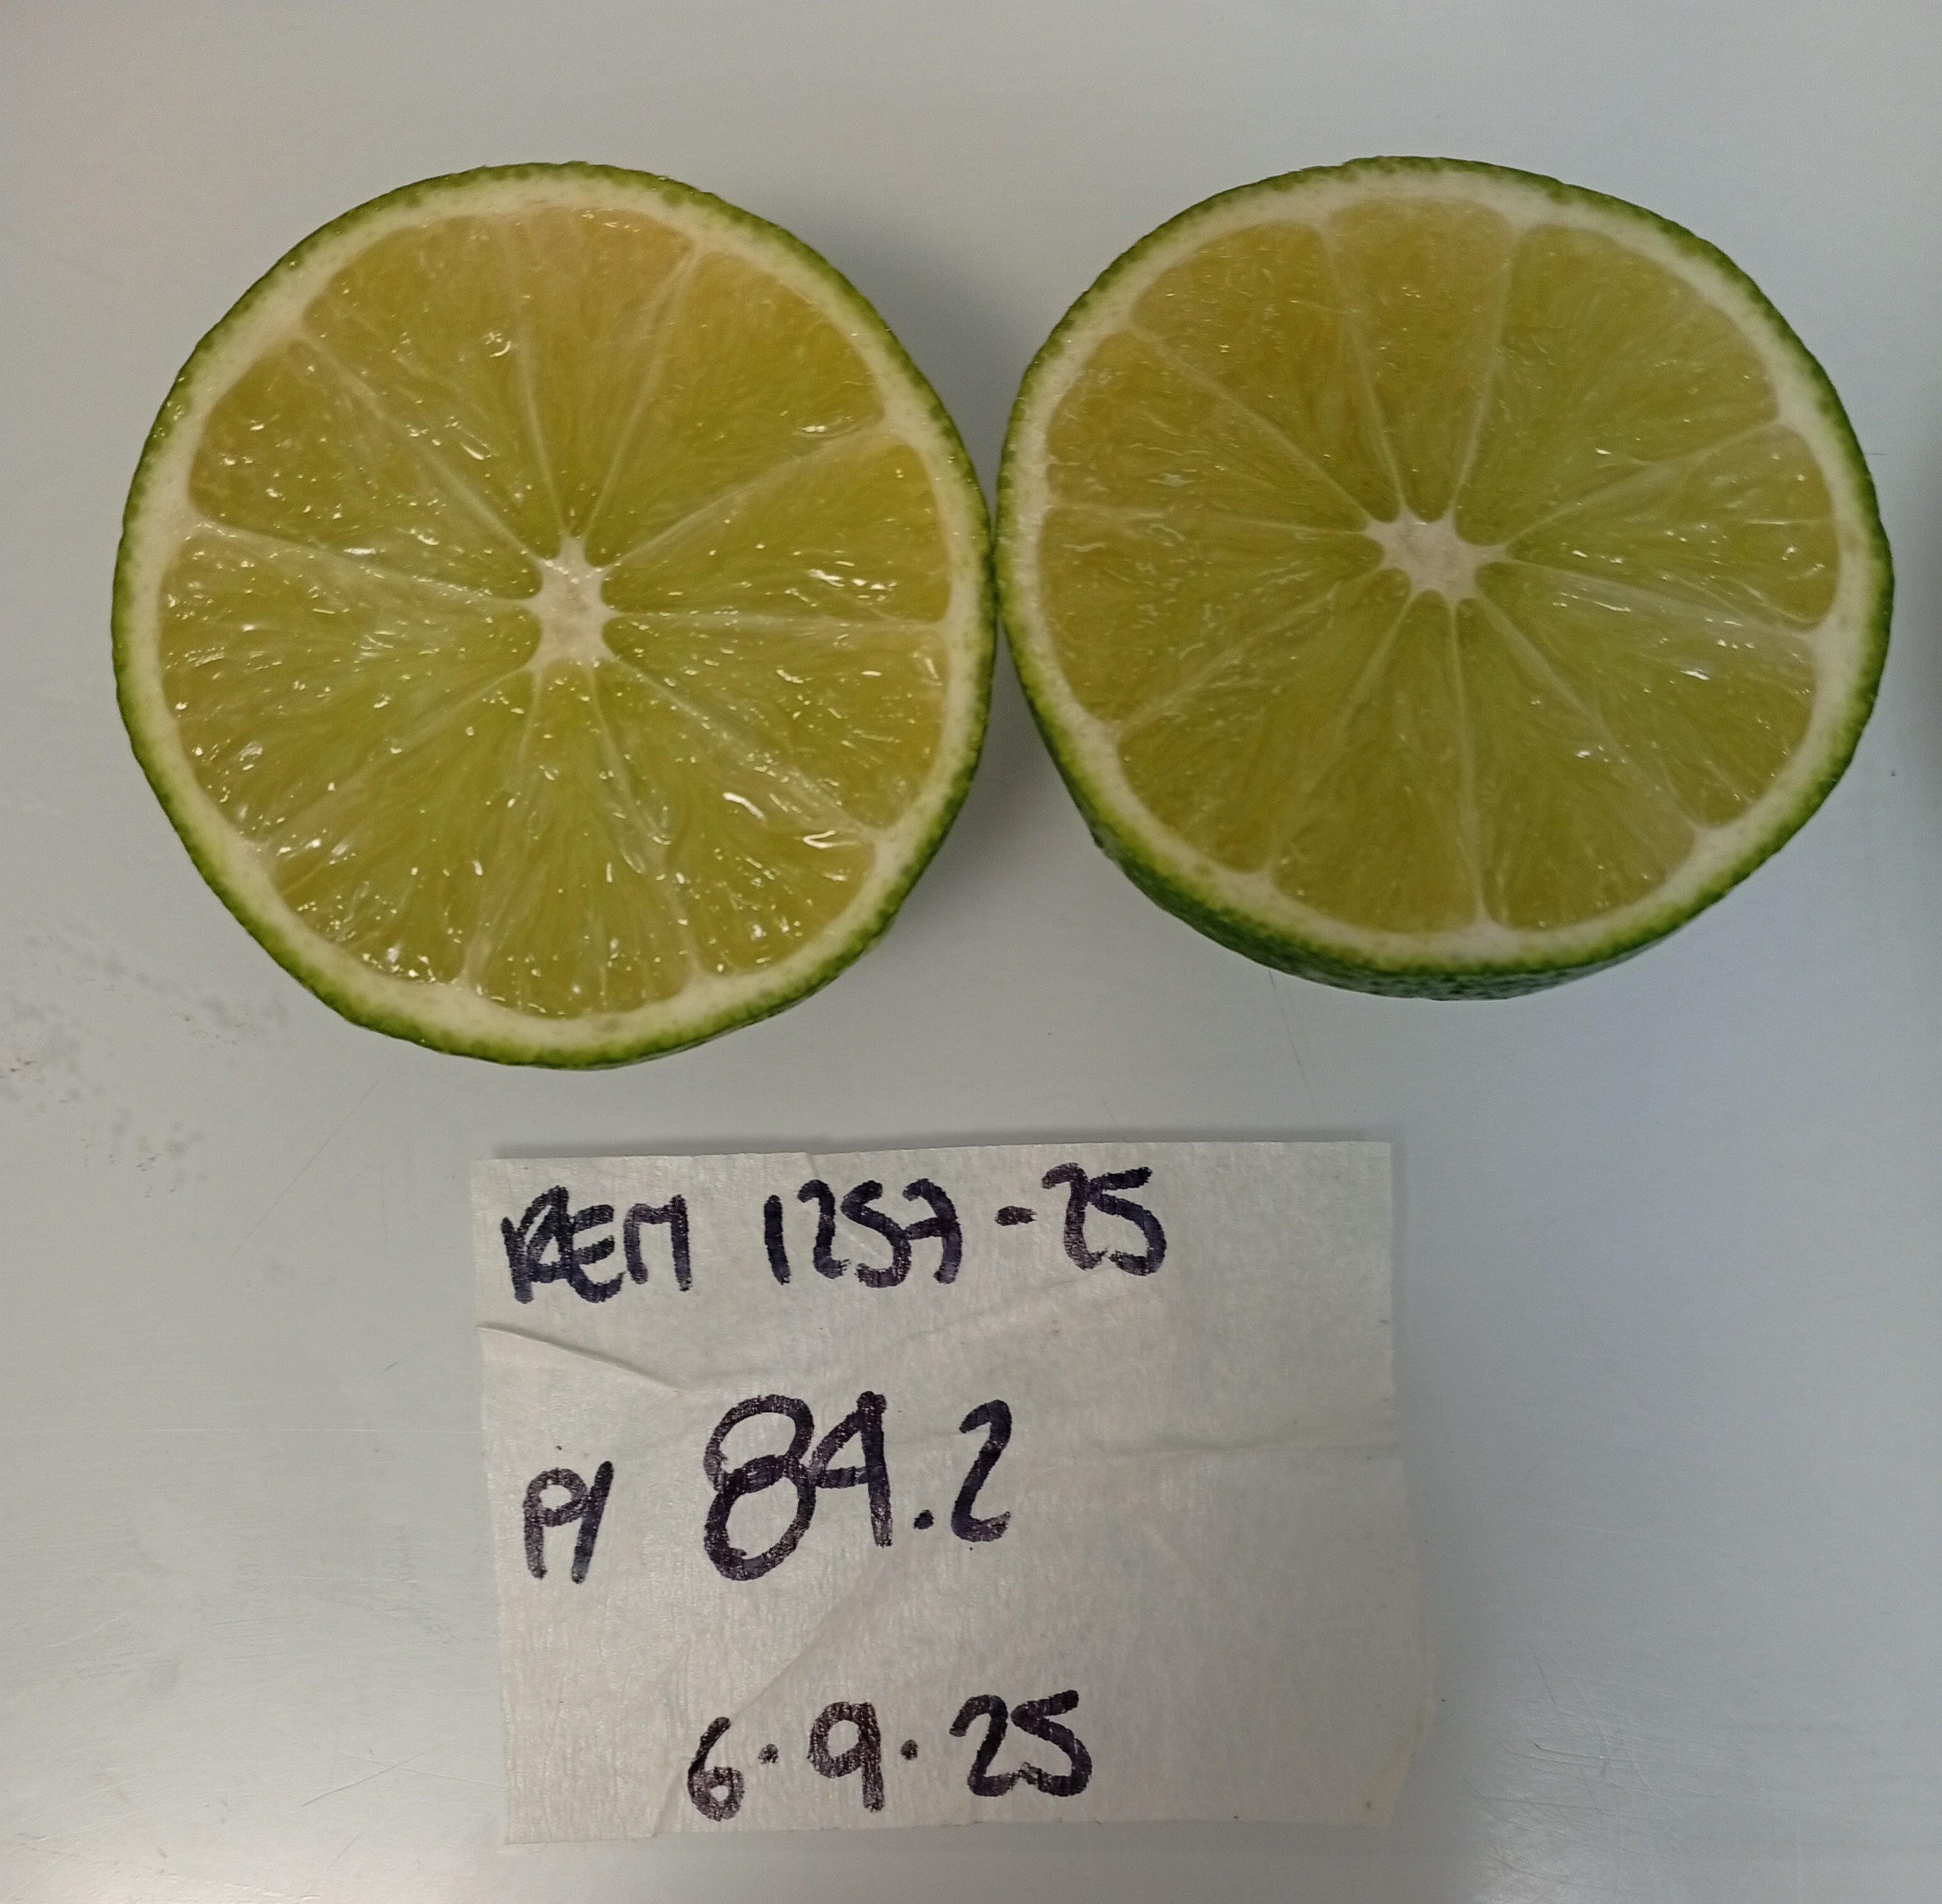 REM 1257-25
P1 84.2
6.9.25